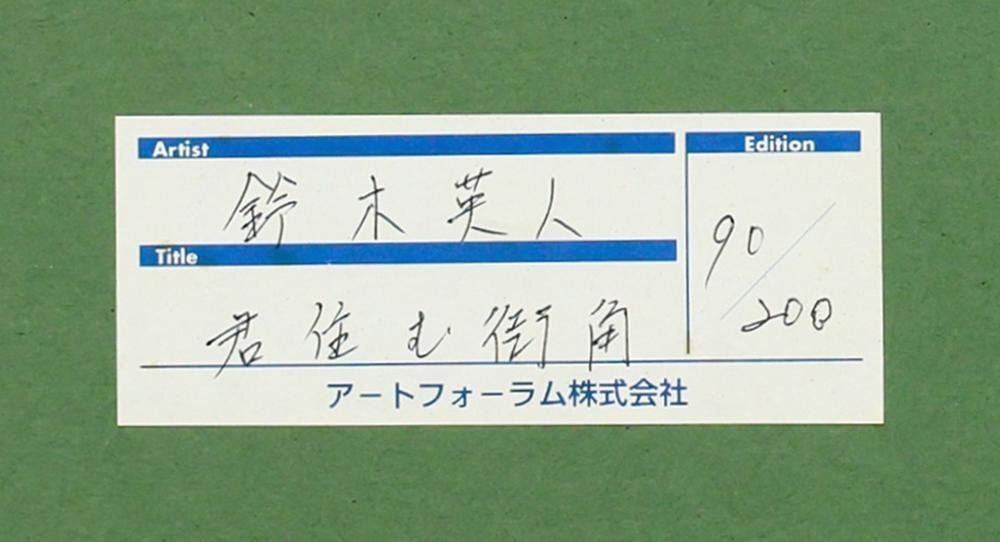 Artist
鈴木英人
Title
君住む街角
Edition
90/200
アートフォーラム株式会社